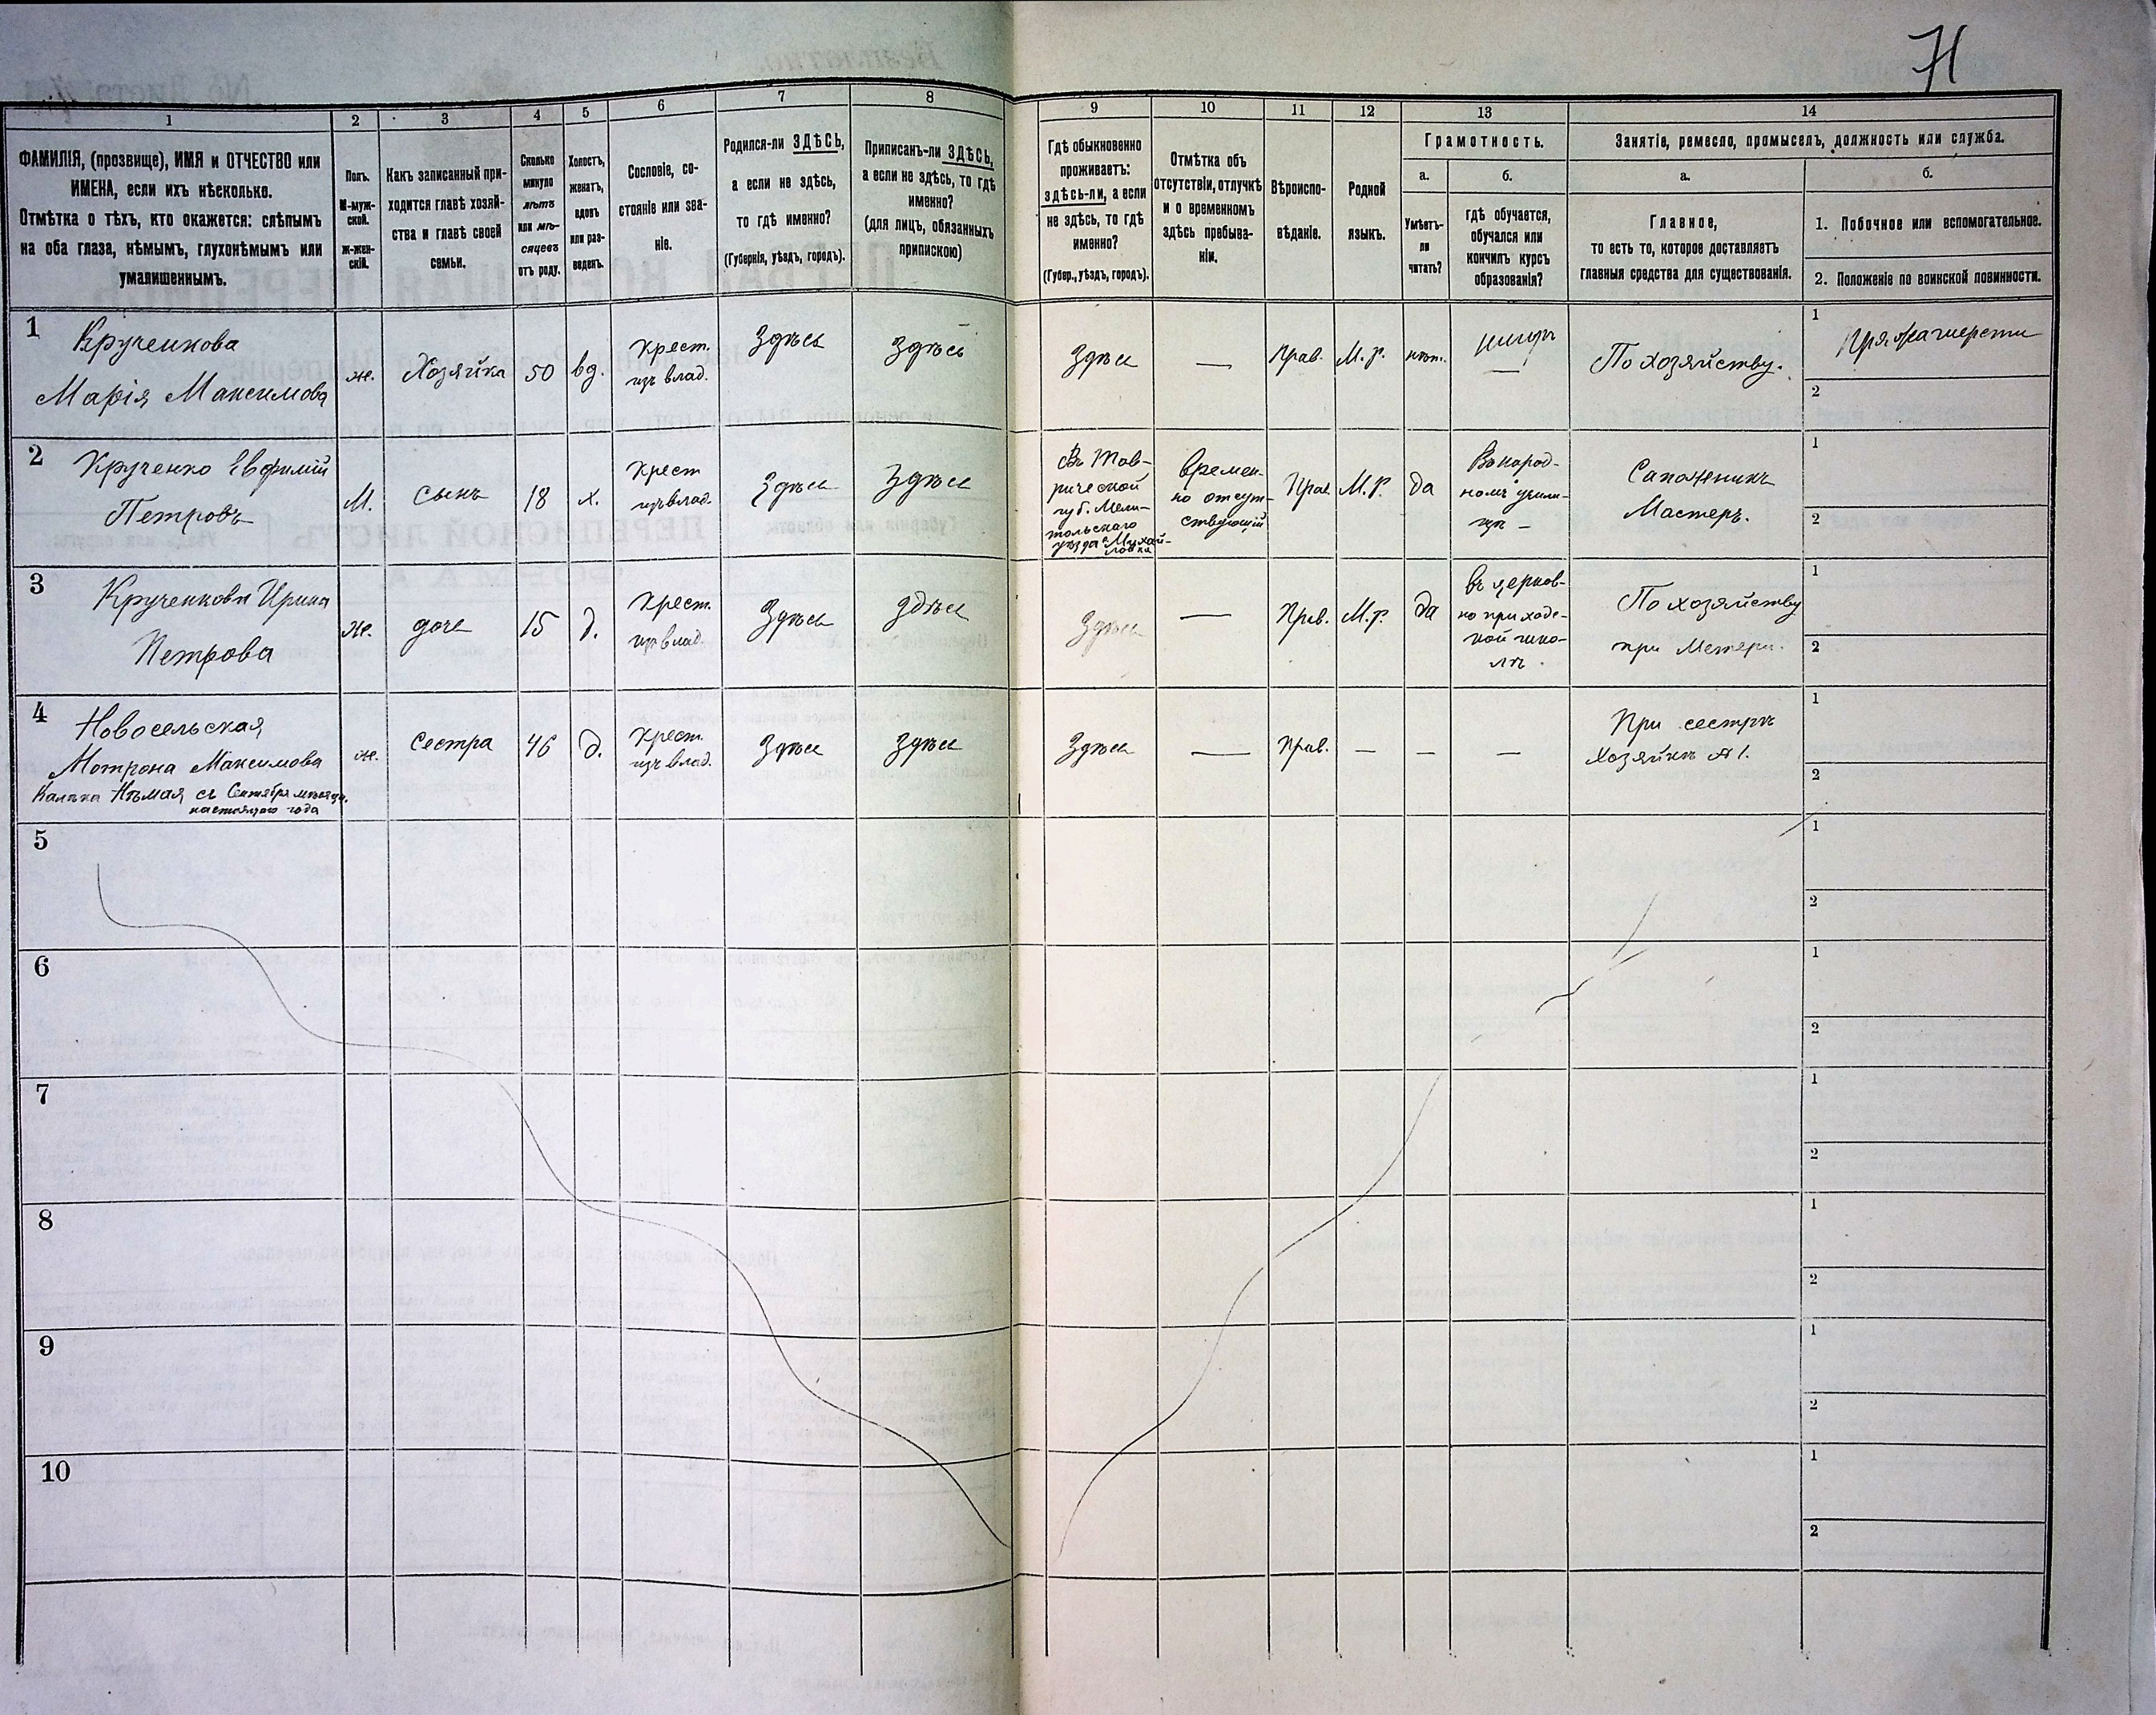 71
1 2 3 4 5 6 7 8 9 10 11 12 13 14
ФАМИЛІЯ, (прозвище), ИМЯ и ОТЧЕСТВО или
ИМЕНА, если ихъ нѣсколько.
Отмѣтка о тѣхъ, кто окажется: слѣпымъ
на оба глаза, нѣмымъ, глухонѣмымъ или
умалишеннымъ.
Полъ.
М-муж-
ской.
ж-жен-
скій.
Какъ записанный при-
ходится главѣ хозяй-
ства и главѣ своей
семьи.
Сколько
минуло
лѣтъ
или мѣ-
сяцевъ
отъ роду.
Холостъ,
женатъ,
вдовъ
или раз-
веденъ.
Сословіе, со-
стояніе или зва-
ніе.
Родился-ли ЗДѢСЬ,
а если не здѣсь,
то гдѣ именно?
(Губернія, уѣздъ, городъ).
Приписанъ-ли ЗДѢСЬ,
а если не здѣсь, то гдѣ
именно?
(для лицъ, обязанныхъ
припискою)
Гдѣ обыкновенно
проживаетъ:
здѣсь-ли, а если
не здѣсь, то гдѣ
именно?
(Губер., уѣздъ, городъ).
Отмѣтка объ
отсутствіи, отлучкѣ
и о временномъ
здѣсь пребыва-
ніи.
Вѣроиспо-
вѣданіе.
Родной
языкъ.
Грамотность.
а.
Умѣетъ-
ли
читать?
б.
гдѣ обучается,
обучался или
кончилъ курсъ
образованія?
Занятіе, ремесло, промыселъ, должность или служба.
а.
Главное,
то есть то, которое доставляетъ
главныя средства для существованія.
б.
1. Побочное или вспомогательное.
2. Положеніе по воинской повинности.
1
Крученкова
Марія Максимова
ж.
Хозяйка
50
вд.
Крест.
изъ влад.
Здѣсь
Здѣсь
Здѣсь
—
Прав.
М. р.
нѣт.
—
По хозяйству.
1
Пряжа шерсти
2
2
Крученко Евфимій
Петровъ
М.
сынъ
18
х.
Крест
изъ влад.
Здѣсь
Здѣсь
Въ Тав-
рической
губ. Мели-
топольскаго
уѣзда с. Михай-
ловка
Времен-
но отсут-
ствующій
Прав.
М. р.
да
Въ народ-
номъ учили-
щѣ —
Сапожникъ
Мастеръ.
1
2
3
Крученкова Ирина
Петрова
ж.
дочь
15
д.
Крест.
изъ влад.
Здѣсь
Здѣсь
Здѣсь
—
Прав.
М. р.
да
въ церков-
но приход-
ской шко-
лѣ.
По хозяйству
при Матери.
1
2
4
Новосельская
Мотрона Максимова
Калѣка Нѣмая съ Сентября мѣсяца
настоящаго года
ж.
Сестра
46
д.
Крест.
изъ влад.
Здѣсь
Здѣсь
Здѣсь
—
Прав.
—
—
—
При сестрѣ
Хозяйкѣ № 1.
1
2
5
1
2
6
1
2
7
1
2
8
1
2
9
1
2
10
1
2